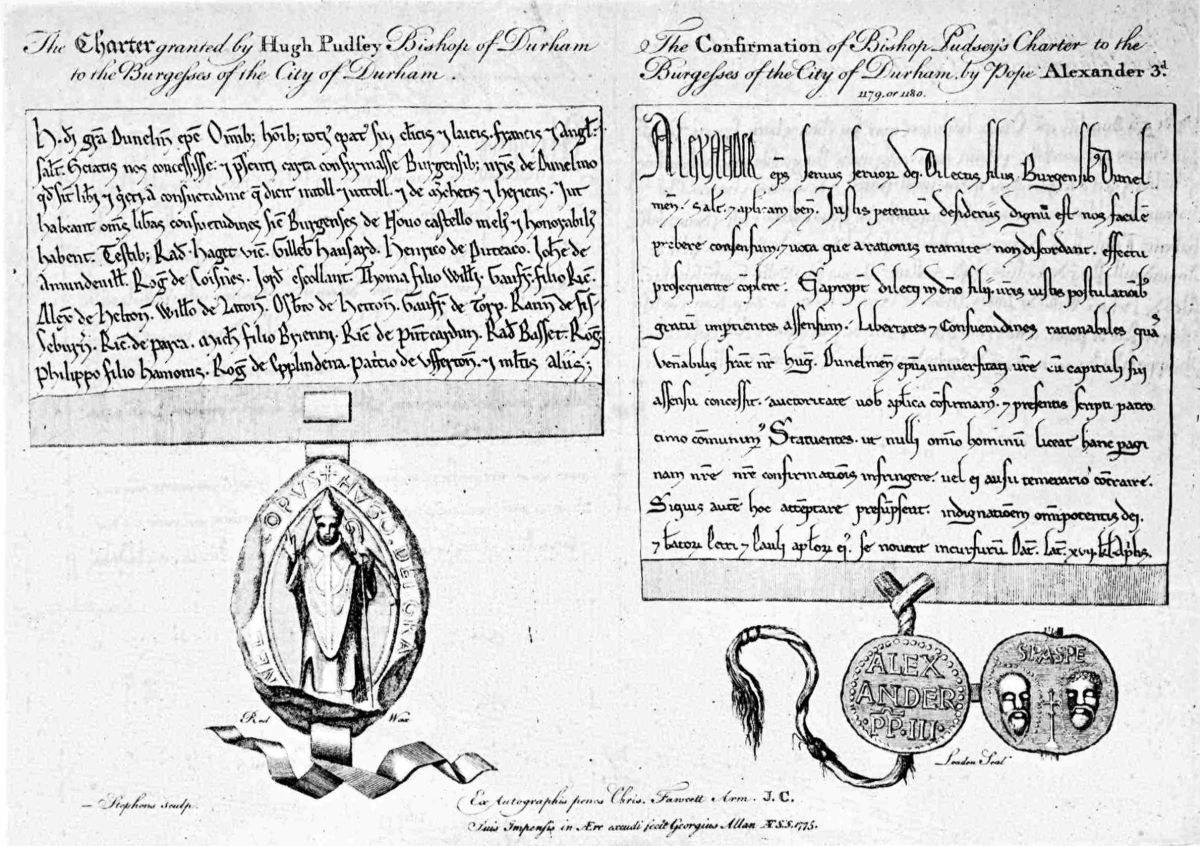 The Charter granted by Hugh Pudsey Bishop of Durham
to the Burgesses of the City of Durham
H. dī grā Dunelm̄ epc̄ Omīb; hom̄ib; toti⁹ epat⁹ sui cl̄icis ⁊ laicis. francis ⁊ Angl̄.
salt̄. Sciatis nos concessisse. ⁊ p̄senti carta confirmasse Burgensib; nr̄is de Dunelmo
qd̄ sīt lib̄i ⁊ q̄eti. a consuetudine q̄ dicit᷑ intoll ⁊ uttoll. ⁊ de m̄chetis ⁊ herieris. ⁊ ut
habeant om̄s lib̄as consuetudines sic̄ Burgenses de Novo castello meli⁹ ⁊ honorabili⁹
habent. Testib; Rad̄. Haget vic̄. Gilleb̄ Hansard. Henrico de Puteaco. Joh̄e de
Amundevill̄. Roḡ de Coisñes. Jord̄ escollant. Thoma filio Will̄i. Gaufr̄. filio Ric̄.
Alex̄ de Helton. Will̄o de Laton. Osb̄to de Hetton. Gaufr̄ de Torp. Rann̄ de fis
seburn̄. Ric̄. de parca. Mich̄. filio Brienni. Ric̄ de Pūtcardun. Rad̄ Basset. Roḡ.
Philippo filio Hamonis. Roḡ de Epplindena. Pat̄cio de Offerton. ⁊ m̄ltis aliis;
OPUS + HUGO DEI GRA
Red Wax
Stephens sculp.
The Confirmation of Bishop Pudsey's Charter to the
Burgesses of the City of Durham, by Pope Alexander 3.d
1179. or 1180.
Alexander ep̄s servus servor̄ dei. Dilectis filiis Burgensib⁹ Dunel
men. Salt̄. ⁊ apl̄icam ben̄. Justis petentiū desideriis dignū est nos facilē
prebere consensum. ⁊ vota que a rationis tramite non discordant. effectu
prosequente cōplere. Eapropt̄ dilecti in dn̄o filii v̄ris iustis postulationib⁹
gratū imp̄tientes assensum. Libertates ⁊ Consuetudines rationabiles quas
ven̄abilis frat̄ nr̄ Hug. Dunelmen̄ ep̄us universitati vr̄e cū capituli sui
assensu concessit. auctoritate vob̄ apl̄ica cōfirmam⁹. ⁊ presentis scripti patro
cinio cōmunim⁹. Statuentes. ut nulli om̄io hominū liceat hanc pagi
nam nr̄e cōfirmatiōis infringere. vel ei ausu temerario cōtraire.
Siquis autē hoc attēptare presūpserit. indignatiōem om̄ipotentis dei.
⁊ b̄ator̄ Petri ⁊ Pauli apl̄or̄ ei⁹. se noverit incursurū. Dat̄. Lat̄. xvii. kl̄. Ap̄lis.
ALEX
ANDER
PP. III.
SPASPE
Leaden Seal
Ex Autographis penes Chris. Fawcett Arm. J. C.
Suis Impensis in Ære excudi fecit Georgius Allan A.S.S. 1775.